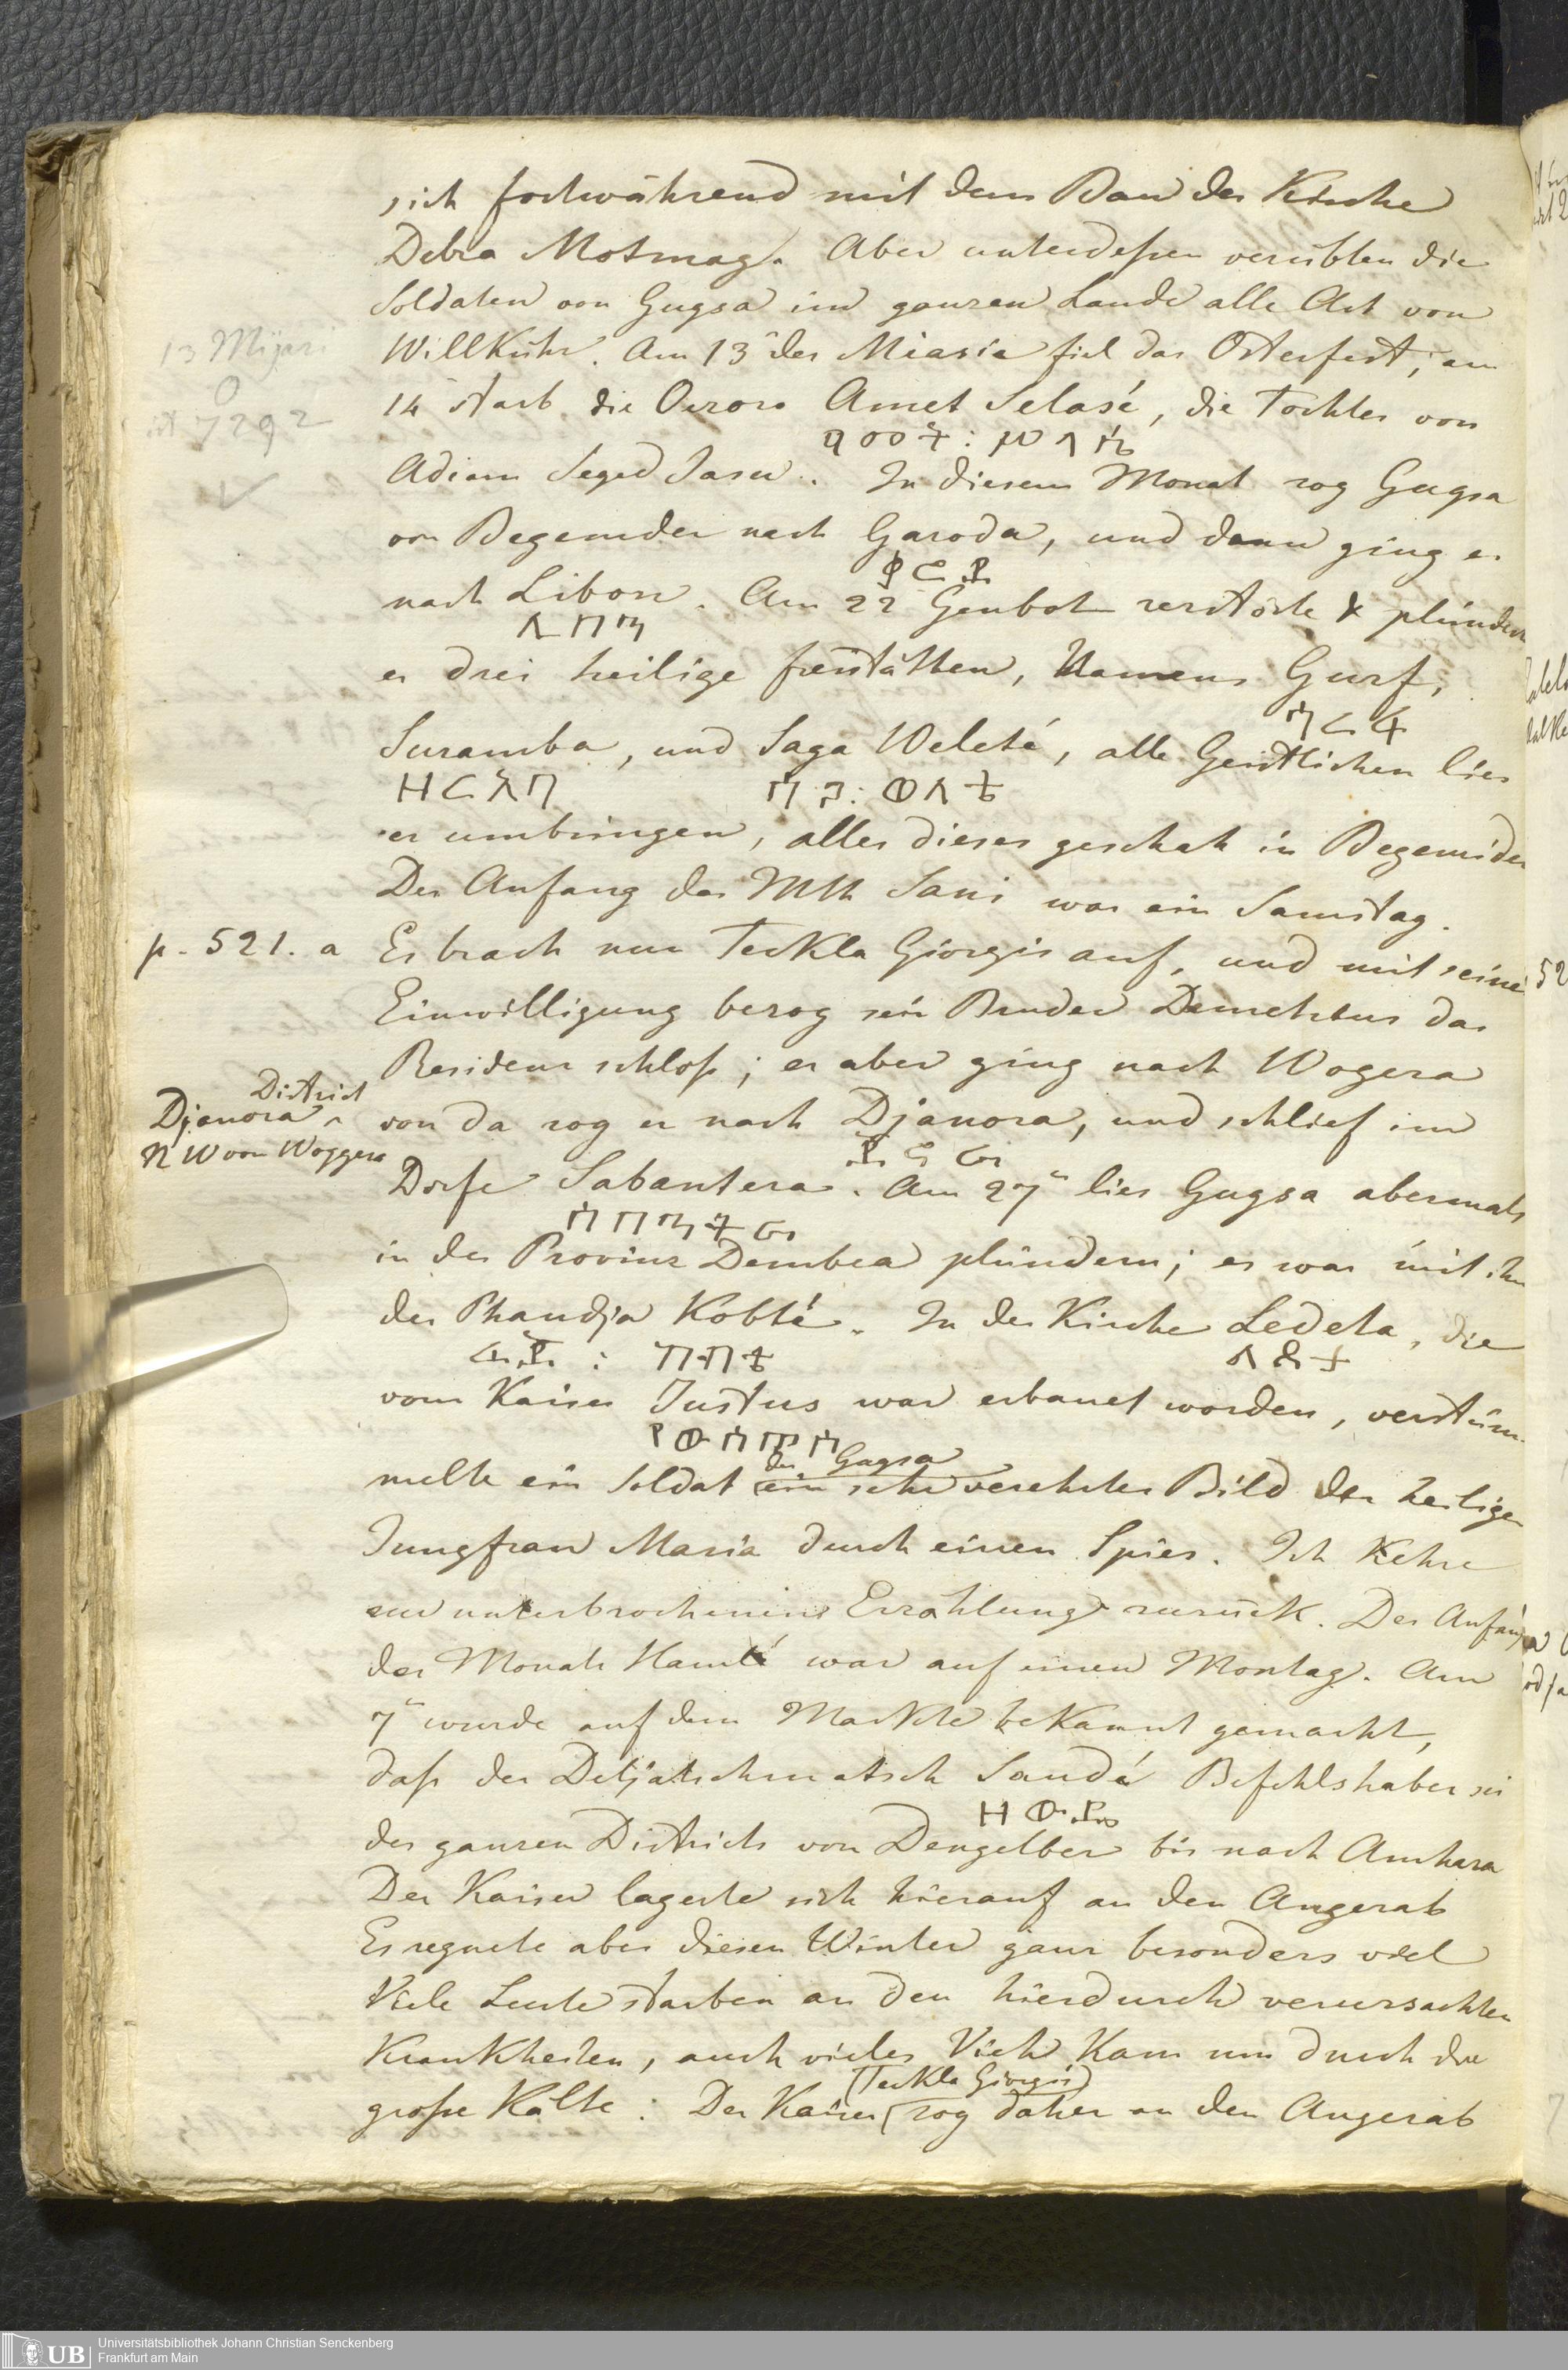 sich fortwährend mit dem Bau der Kirche
Debra Motmag. Aber unterdeßen verübten die
Soldaten von Gugsa im ganzen Lande alle Art von
13 Mijari
Willkühr. Am 13ⁿ des Miasia fiel das Osterfest; am
0
ist 7292
14 starb die Oezoro Amet Selasé, die Tochter von
ዓመት: ሥላሴ
Adiam Seged Jasu. In diesem Monat zog Gugsa
von Begemder nach Garoda, und dann ging er
ቀሮዳ
nach Libon. Am 22 Genbot zerstörte & plündert
ሊቦን
er drei heilige freistätten, Namens Gurf,
ጉርፍ
Suramba, und Saga Weleté, alle Geistlichen lies
ዙርአባ
ሰጋ: ወለቴ
er umbringen, alles dieses geschah in Begemider
Der Anfang des Mth Sani war ein Samstag.
p. 521. a
Es brach nun Teckla Giorgis auf, und mit seiner
Einwilligung bezog sein Bruder Demetrius das
Residenz schloß; er aber ging nach Wogera
District
Djanora
N W von Woggera
von da zog er nach Djanora, und schlief im
ጃኖራ
Dorfe Sabantera. Am 27ⁿ lies Gugsa abermals
ሳባንቴራ
in der Provinz Dembea plündern; es war mit ihm
der Phandja Kobté. In der Kirche Ledeta, die
ፋንጃ : ኮብቴ
ልደታ
vom Kaiser Justus war erbauet worden, verstüm-
ዮስጦስ
des Gugsa
melte ein Soldat ein sehr verehrtes Bild der heiligen
Jungfrau Maria durch einen Spies. Ich kehre
zur unterbrochenen Erzählung zurück. Der Anfang
des Monats Hamlé war auf einen Montag. Am
7ⁿ wurde auf dem Markte bekannt gemacht,
daß der Detjatschmatsch Saudé Befehlshaber sei
ዘውዴ
des ganzen Districts von Dengelber bis nach Amhara
Der Kaiser lagerte sich hierauf an den Angerab
Es regnete aber diesen Winter ganz besonders viel
Viele Leute starben an den hierdurch verursachten
Krankheiten, auch vieles Vieh kam um durch die
(Teckla Giorgis)
große Kälte. Der Kaiser zog daher an den Angerab
UB
Universitätsbibliothek Johann Christian Senckenberg
Frankfurt am Main